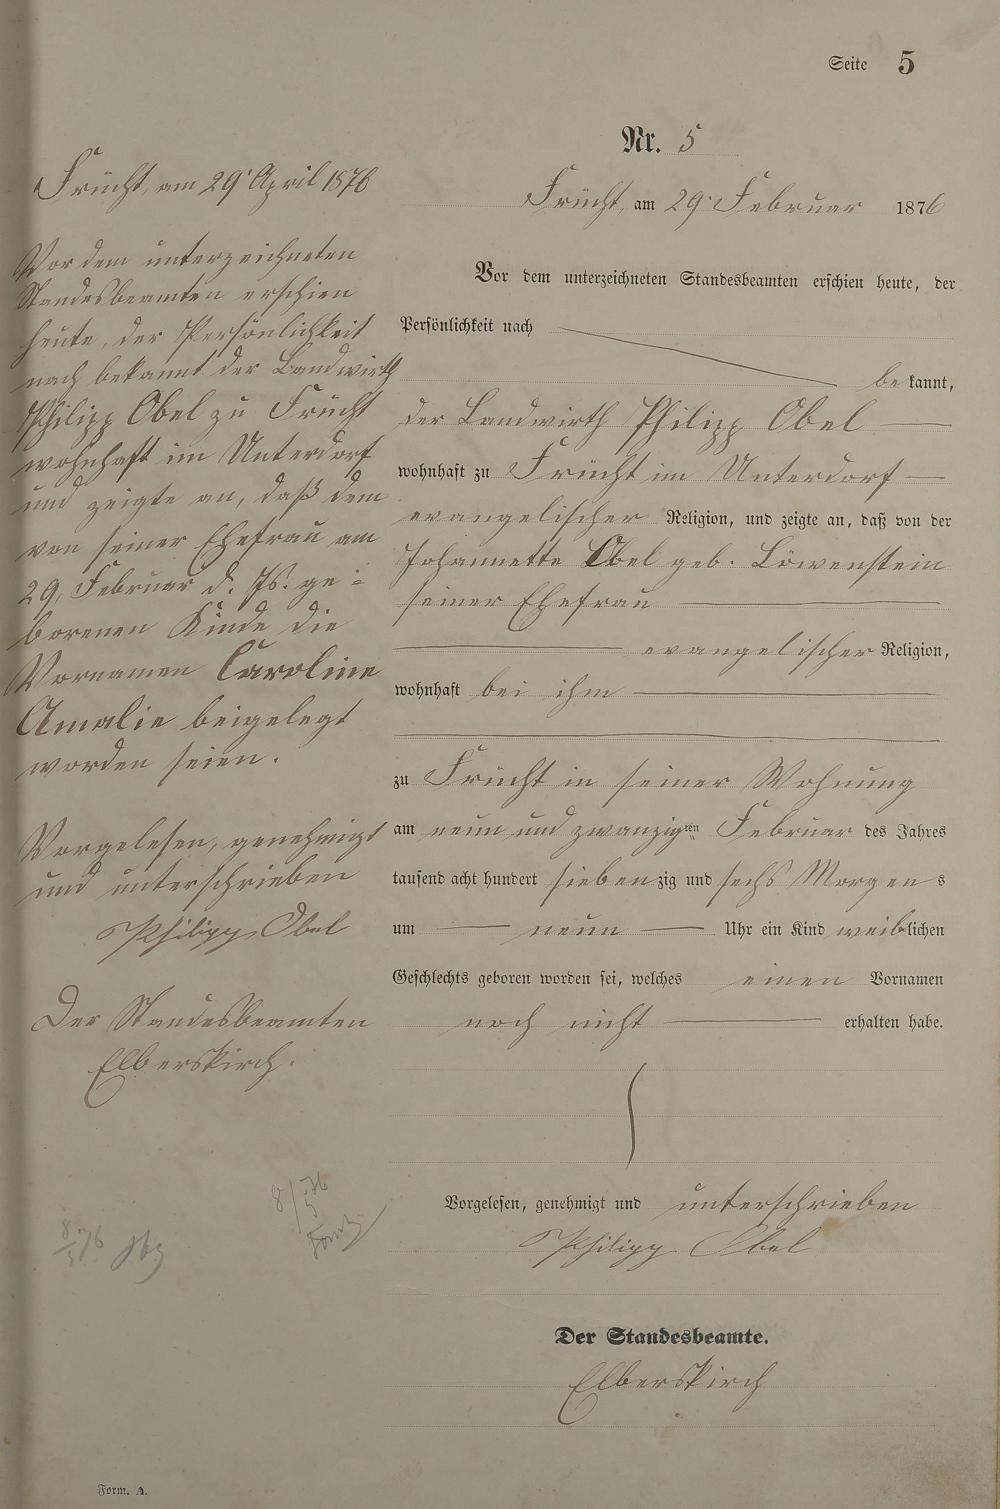 Seite 5
Nr. 5
Frücht, am 29. Februar 1876
Vor dem unterzeichneten Standesbeamten erschien heute, der
Persönlichkeit nach
bekannt,
der Landwirth Philipp Obel
wohnhaft zu Frücht im Unterdorf
evangelischer Religion, und zeigte an, daß von der
Johannette Obel geb. Löwenstein
seiner Ehefrau
evangelischer Religion,
wohnhaft bei ihm
zu Frücht in seiner Wohnung
am neun und zwanzigten Februar des Jahres
tausend acht hundert siebenzig und sechs Morgens
um neun Uhr ein Kind weiblichen
Geschlechts geboren worden sei, welches einen Vornamen
noch nicht erhalten habe.
Vorgelesen, genehmigt und unterschrieben
Philipp Obel
Der Standesbeamte.
Elberskirch
Frücht, am 29. April 1876
Vor dem unterzeichneten
Standesbeamten erschien
heute, der Persönlichkeit
nach bekannt der Landwirth
Philipp Obel zu Frücht
wohnhaft im Unterdorf
und zeigte an, daß dem
von seiner Ehefrau am
29. Februar d. Js. ge-
borenen Kinde die
Vornamen Caroline
Amalie beigelegt
worden seien.
Vorgelesen, genehmigt
und unterschrieben
Philipp Obel
Der Standesbeamten
Elberskirch.
8/5 76
8/5 76
Form. A.